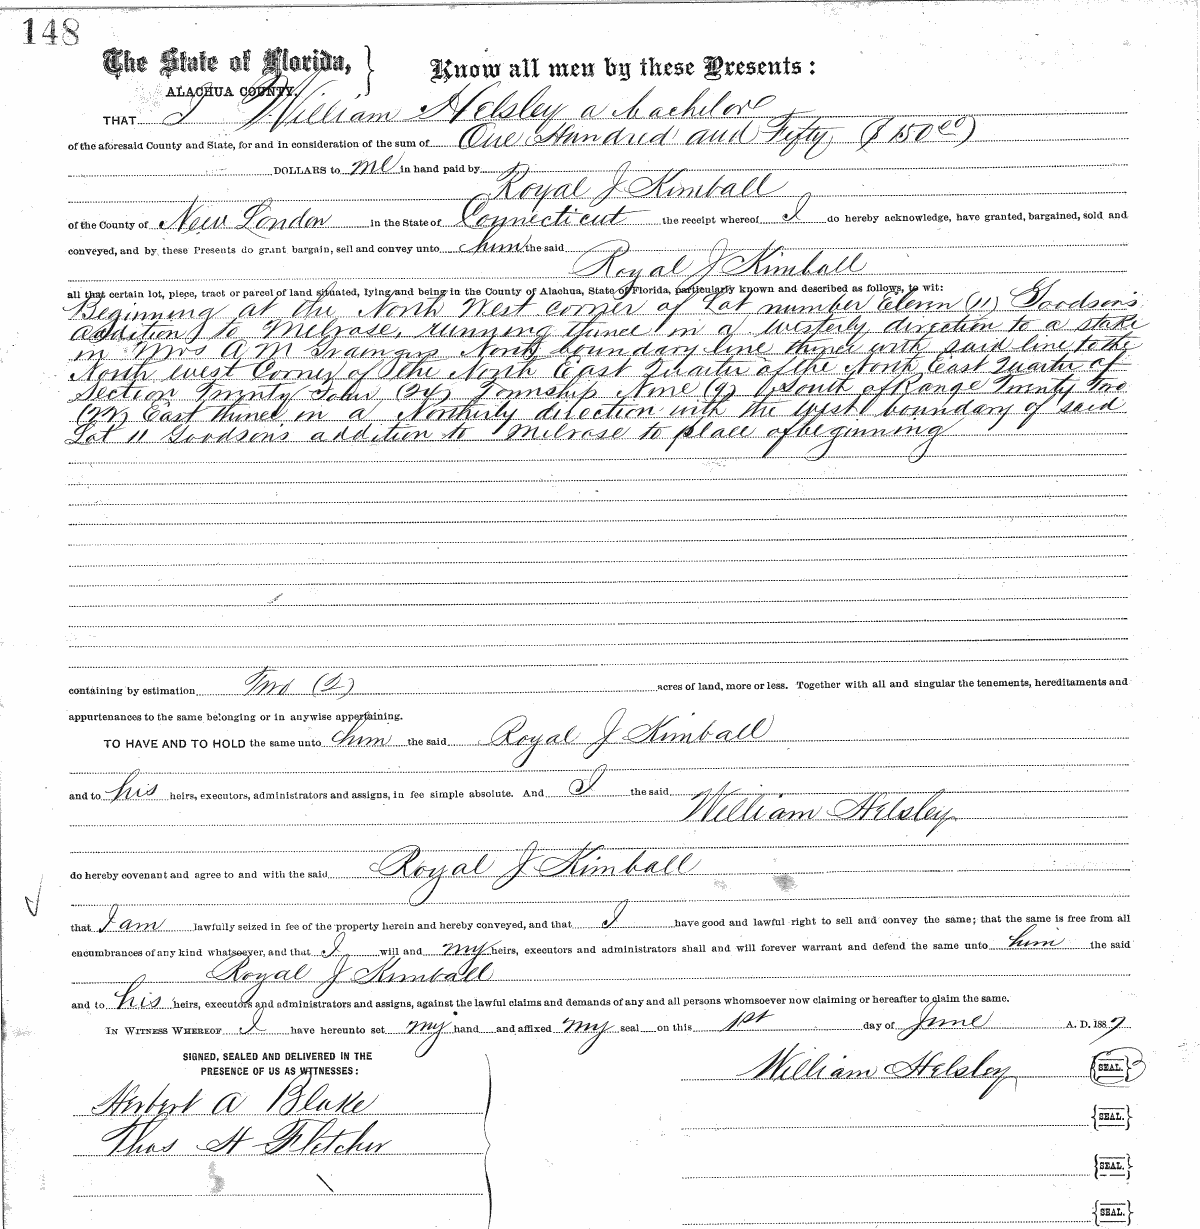 148
The State of Florida,
ALACHUA COUNTY.
Know all men by these Presents:
THAT I William Helsley a bachelor
of the aforesaid County and State, for and in consideration of the sum of One Hundred and Fifty ($150.00)
DOLLARS to me in hand paid by
Royal J Kimball
of the County of New London in the State of Connecticut the receipt whereof I do hereby acknowledge, have granted, bargained, sold and
conveyed, and by these Presents do grant bargain, sell and convey unto him the said
Royal J Kimball
all that certain lot, piece, tract or parcel of land situated, lying and being in the County of Alachua, State of Florida, particularly known and described as follows, to wit:
Beginning at the North West corner of Lot number Eleven (11) Goodson's
addition to Melrose, running thence in a westerly direction to a stake
in Mrs A M Graingers North boundary line thence with said line to the
North west Corner of the North East Quarter of the North East Quarter of
Section Twenty Four (24) Township Nine (9) South of Range Twenty Two
(22) East thence in a Northerly direction with the west boundary of said
Lot 11 Goodson's addition to Melrose to place of beginning
containing by estimation Two (2) acres of land, more or less. Together with all and singular the tenements, hereditaments and
appurtenances to the same belonging or in anywise appertaining.
TO HAVE AND TO HOLD the same unto him the said Royal J Kimball
and to his heirs, executors, administrators and assigns, in fee simple absolute. And I the said
William Helsley
do hereby covenant and agree to and with the said Royal J Kimball
that I am lawfully seized in fee of the property herein and hereby conveyed, and that I have good and lawful right to sell and convey the same; that the same is free from all
encumbrances of any kind whatsoever, and that I will and my heirs, executors and administrators shall and will forever warrant and defend the same unto him the said
Royal J Kimball
and to his heirs, executors and administrators and assigns, against the lawful claims and demands of any and all persons whomsoever now claiming or hereafter to claim the same.
IN WITNESS WHEREOF I have hereunto set my hand and affixed my seal on this 1st day of June A. D. 1887
SIGNED, SEALED AND DELIVERED IN THE
PRESENCE OF US AS WITNESSES:
William Helsley {SEAL.}
Herbert A Blake
{SEAL.}
Thos H Fletcher
{SEAL.}
{SEAL.}